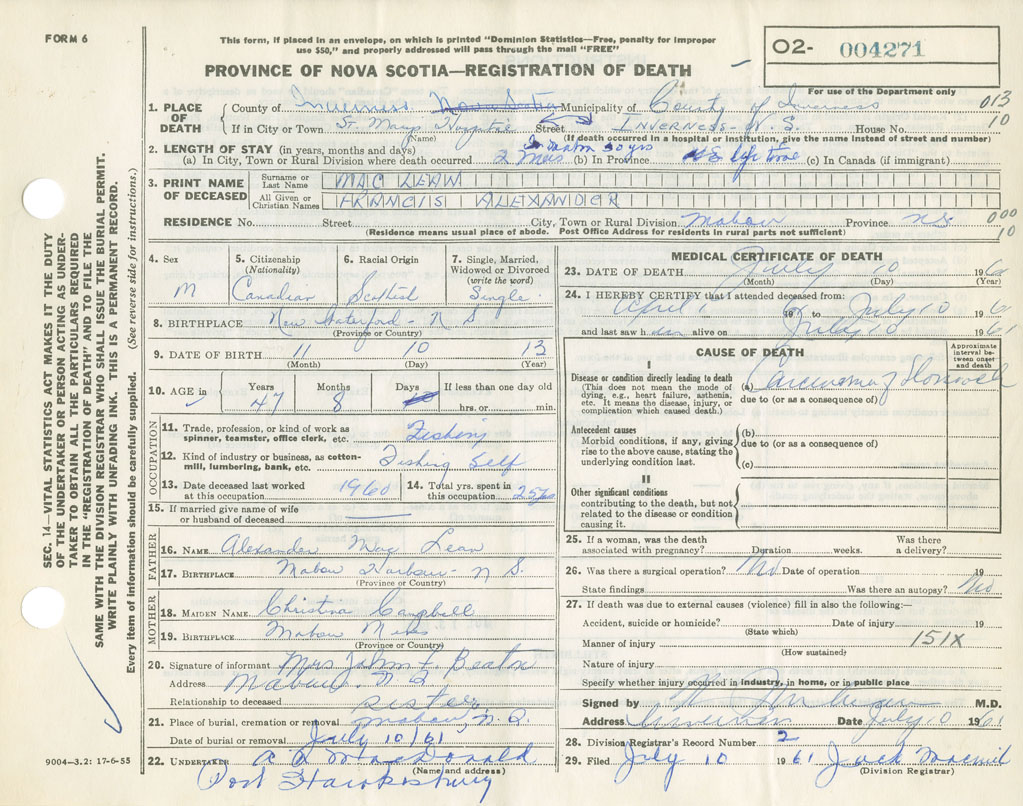 FORM 6
This form, if placed in an envelope, on which is printed "Dominion Statistics—Free, penalty for improper
use $50," and properly addressed will pass through the mail "FREE"
PROVINCE OF NOVA SCOTIA—REGISTRATION OF DEATH
02- 004271
For use of the Department only
1. PLACE OF DEATH County of Inverness Nova Scotia Municipality of County of Inverness 013
If in City or Town St. Marys Hospital Street INVERNESS - N. S. House No. 10
(Name) (If death occurred in a hospital or institution, give the name instead of street and number)
2. LENGTH OF STAY (in years, months and days) 30 yrs
(a) In City, Town or Rural Division where death occurred 2 (b) In Province life time (c) In Canada (if immigrant)
3. PRINT NAME OF DECEASED Surname or Last Name MAC LEAN
All Given or Christian Names FRANCIS ALEXANDER
RESIDENCE No. Street City, Town or Rural Division Mabou Province NS 000
10
(Residence means usual place of abode. Post Office Address for residents in rural parts not sufficient)
4. Sex M
5. Citizenship (Nationality) Canadian
6. Racial Origin Scottish
7. Single, Married, Widowed or Divorced (write the word) Single
8. BIRTHPLACE New Waterford - N S
(Province or Country)
9. DATE OF BIRTH 11 10 13
(Month) (Day) (Year)
10. AGE in Years 47 Months 8 Days If less than one day old hrs. or min.
OCCUPATION
11. Trade, profession, or kind of work as spinner, teamster, office clerk, etc. Fishing
12. Kind of industry or business, as cotton-mill, lumbering, bank, etc. Fishing Self
13. Date deceased last worked at this occupation 1960
14. Total yrs. spent in this occupation 25
15. If married give name of wife or husband of deceased
FATHER
16. NAME Alexander Mac Lean
17. BIRTHPLACE Mabou Harbour - N S.
(Province or Country)
MOTHER
18. MAIDEN NAME Christina Campbell
19. BIRTHPLACE Mabou Mines
(Province or Country)
20. Signature of informant Mrs John F. Beaton
Address Mabou. N S
Relationship to deceased sister
21. Place of burial, cremation or removal Mabou N. S.
Date of burial or removal July 10/61
22. UNDERTAKER MacDonald
(Name and address)
Port Hawkesbury
MEDICAL CERTIFICATE OF DEATH
23. DATE OF DEATH July 10 1961
(Month) (Day) (Year)
24. I HEREBY CERTIFY that I attended deceased from:
April 1 19 to July 10 1961
and last saw him alive on July 10 1961
CAUSE OF DEATH
Approximate interval between onset and death
I
Disease or condition directly leading to death
(This does not mean the mode of dying, e.g., heart failure, asthenia, etc. It means the disease, injury, or complication which caused death.)
(a) Carcinoma of Stomach
due to (or as a consequence of)
Antecedent causes
Morbid conditions, if any, giving rise to the above cause, stating the underlying condition last.
(b)
due to (or as a consequence of)
(c)
II
Other significant conditions
contributing to the death, but not related to the disease or condition causing it.
25. If a woman, was the death associated with pregnancy? Duration weeks. Was there a delivery?
26. Was there a surgical operation? No Date of operation 19
State findings Was there an autopsy? No
27. If death was due to external causes (violence) fill in also the following:—
Accident, suicide or homicide? Date of injury 19
(State which)
Manner of injury 151X
(How sustained)
Nature of injury
Specify whether injury occurred in industry, in home, or in public place
Signed by M.D.
Address Inverness Date July 10 1961
28. Division Registrar's Record Number 2
29. Filed July 10 1961
(Division Registrar)
9004—3.2: 17-6-55
SEC. 14—VITAL STATISTICS ACT MAKES IT THE DUTY
OF THE UNDERTAKER OR PERSON ACTING AS UNDER-
TAKER TO OBTAIN ALL THE PARTICULARS REQUIRED
IN THE "REGISTRATION OF DEATH" AND TO FILE THE
SAME WITH THE DIVISION REGISTRAR WHO SHALL ISSUE THE BURIAL PERMIT.
WRITE PLAINLY WITH UNFADING INK. THIS IS A PERMANENT RECORD.
Every item of information should be carefully supplied. (See reverse side for instructions.)